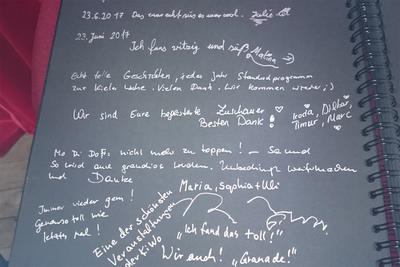 23.6.2017 Das war echt süß es war cool. Julie
23. Juni 2017
Ich fans witzig und süß
Echt tolle Geschichten, jedes Jahr Standardprogramm
zur Kieler Woche. Vielen Dank. Wir kommen wieder ;)
Wir sind Eure begeisterte Zuschauer
Besten Dank!
Iroda, Dilhar,
Timur, Marc
Mo Di Do Fr nicht mehr zu toppen! – Sa und
So wird aue grandios werden. Unbedingt weitermachen
und Danke
Maria, Sophia + Uli
Immer wieder gern!
Genauso toll wie
letztes mal!
Eine der schönsten
Veranstaltungen
der KiWo
"Ich fand das toll!"
Wir auch! "Granade!"